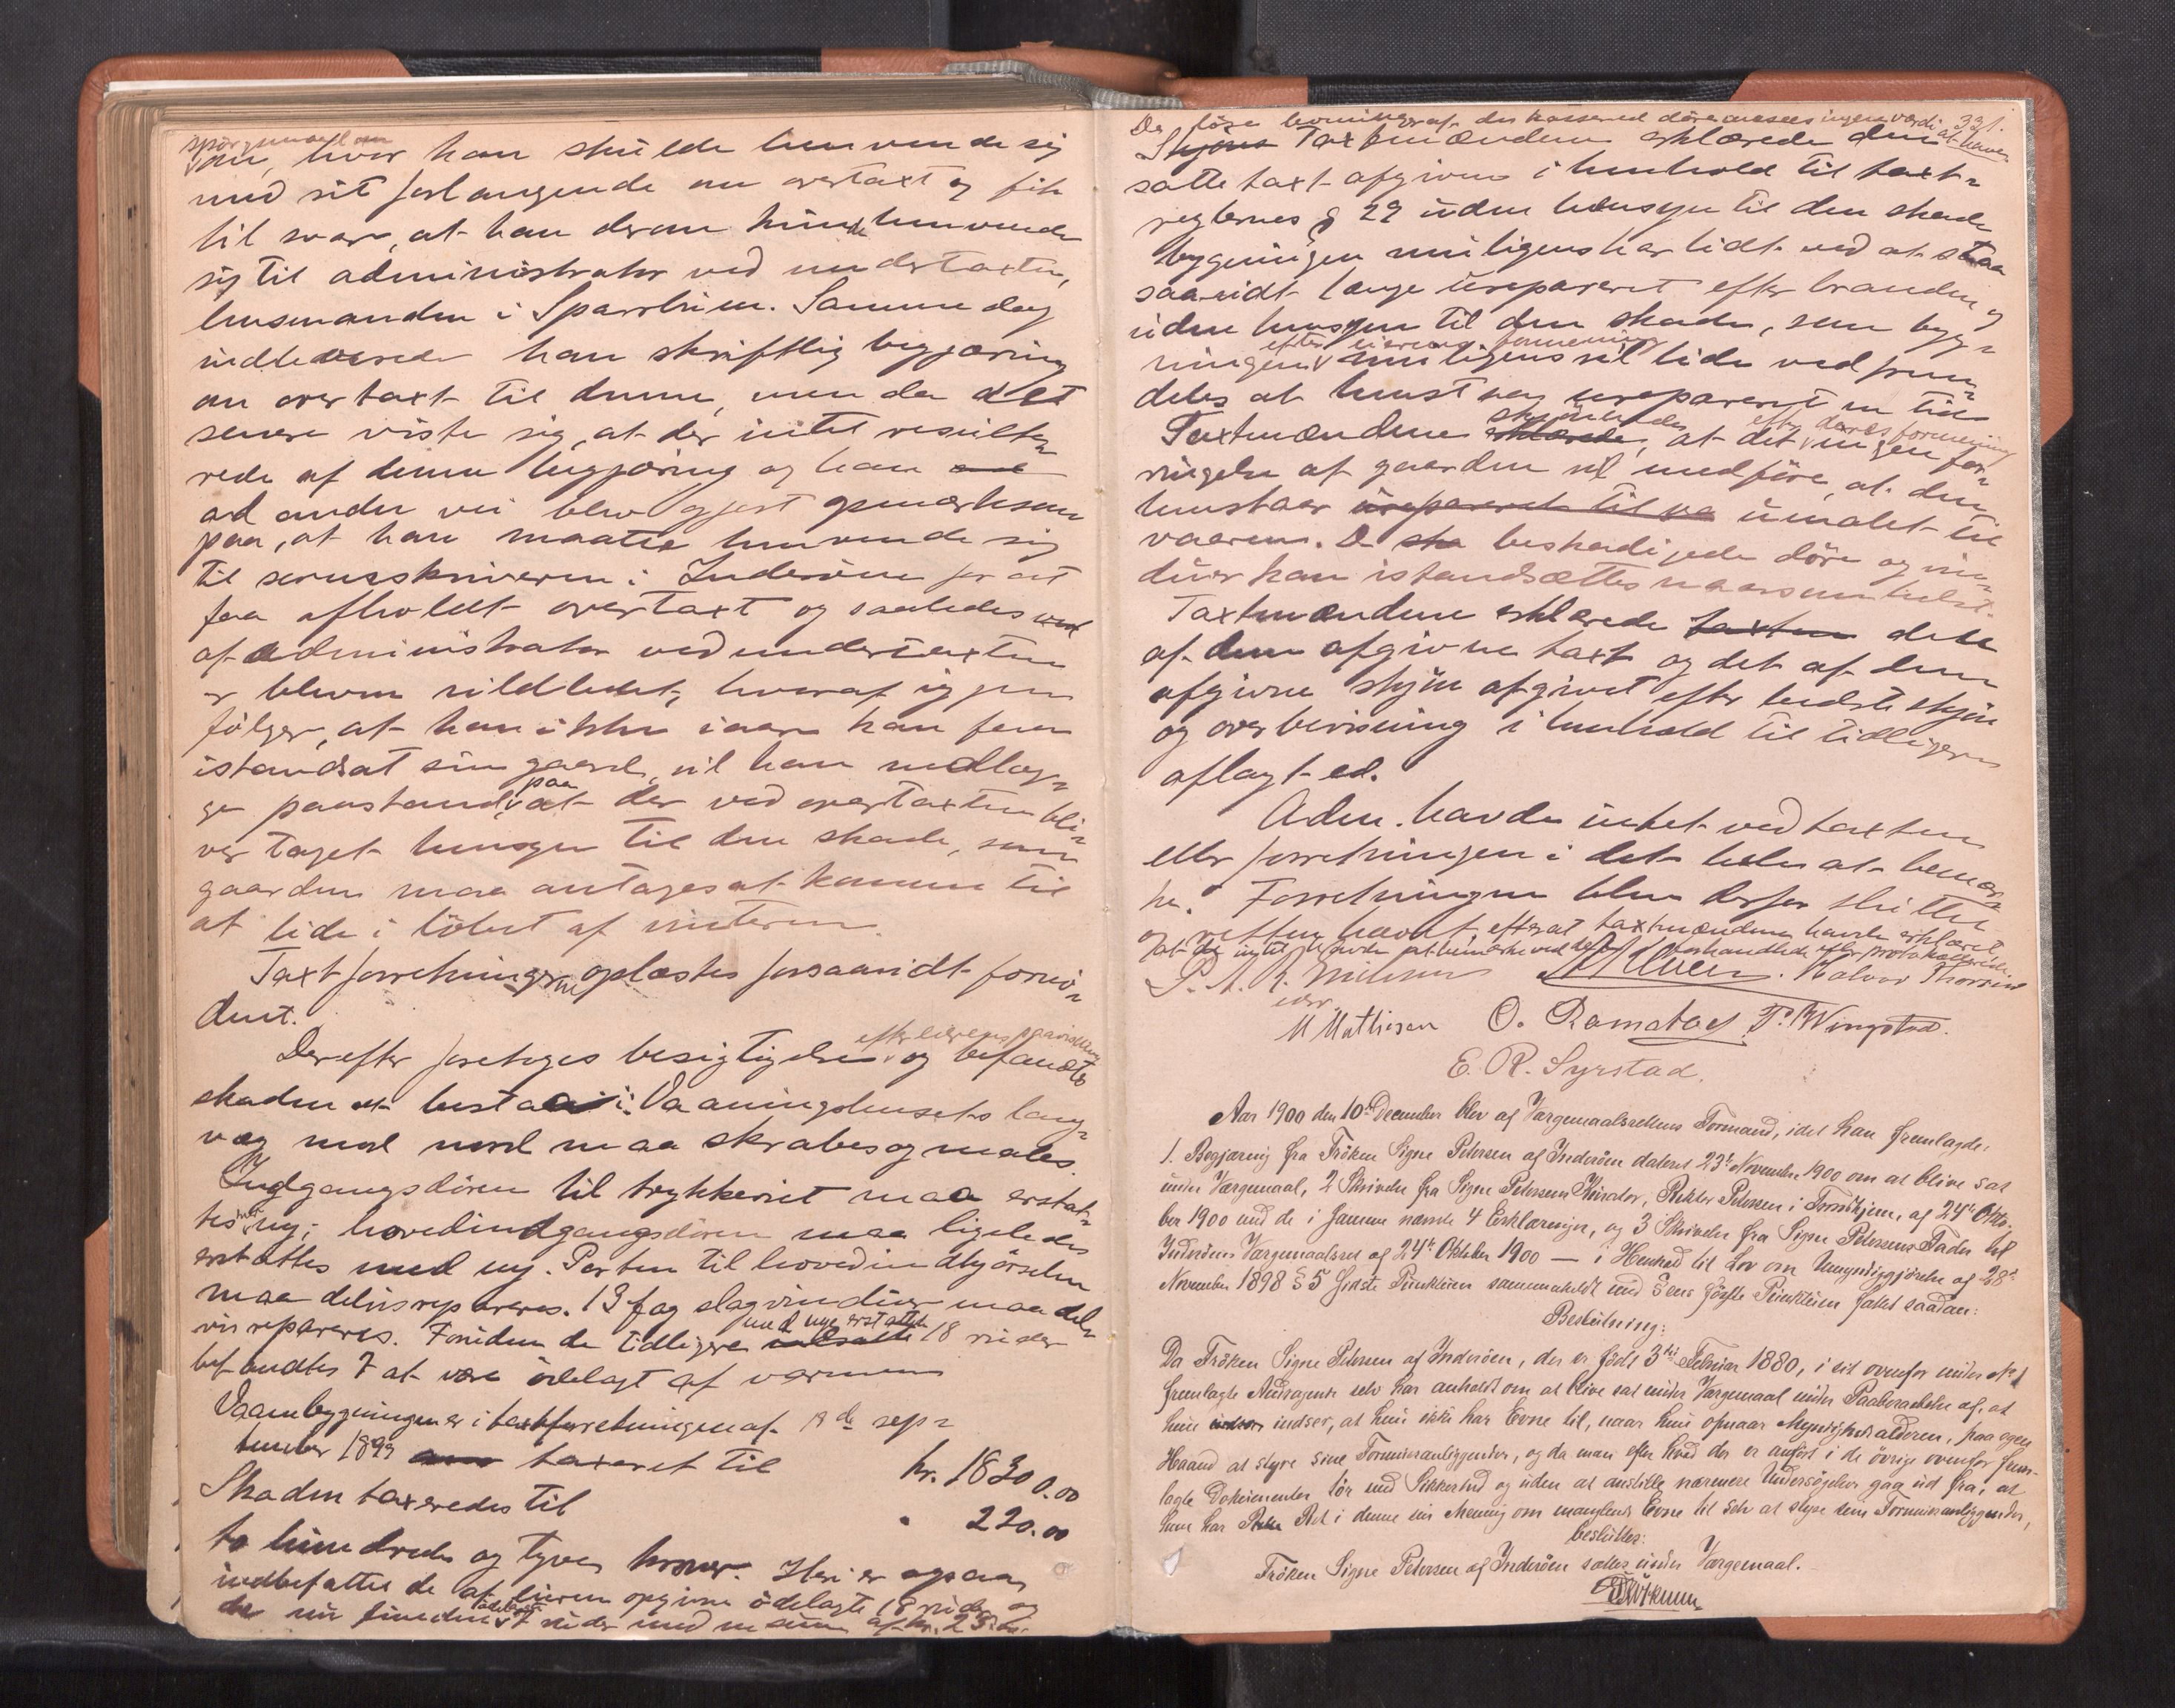 spörgsmaal om
om, hvor han skulde henvende sig
med sit forlangende om overtaxt og fik
til svar, at han derom kunde henvende
sig til administrator ved undertaxten,
lensmanden i Sparbuen. Samme dag
indleverede han skriftlig begjæring
om overtaxt til denne, men da det
senere viste sig, at der intet resulte-
rede af denne begjæring og han
ad anden vei blev gjort opmærksom
paa, at han maatte henvende sig
til sorenskriveren i Inderöen for at
faa afholdt overtaxt og saaledes
af administrator ved undertaxten
er bleven vildledet, hvoraf igjen
følger, at han ikke iaar kan faa
istandsat sin gaard, vil han nedlæg-
ge paastand paa, at der ved overtaxten bli-
ver taget hensyn til den skade, som
gaarden maa antages at komme til
at lide i löbet af vinteren.
Taxtforretningerne oplæstes forsaavidt fornö-
dent.
Derefter foretoges besigtigelse efter eierens paavisning og befandtes
skaden at bestaa i: Vaaningshusets lang-
væg mod nord maa skrabes og males.
Indgangsdören til trykkeriet maa erstat-
tes med ny; hovedindgangsdören maa ligeledes
erstattes med ny. Porten til hovedindkjörselen
maa delvis repareres. 19 fag slagvinduer maa del-
vis repareres. Foruden de tidligere med nye erstattede 18 ruder
befandtes 7 at være ödelagt af varmen
Vaaningsbygningen er i taxtforretningen af 13de sep-
tember 1899 taxeret til kr. 18300.00
Skaden taxeredes til " 220.00
to hundrede og tyve kroner. Heri er ogsaa
indbefattet de af eieren opgivne ödelagte 18 ruder og
de nu fundne ödelagte 7 ruder med en sum af kr. 23.
331.
De löse levninger af den kasserede döre ansees ingen værdi at have.
Taxtmændene erklærede den
satte taxt afgiven i henhold til taxt-
reglernes § 29 uden hensyn til den skade
bygningen muligens har lidt ved at staa
saavidt længe urepareret efter branden og
uden hensyn til den skade, som byg-
ningen efter eierens formening muligens vil lide ved frem-
deles at henstaa urepareret en tid
Taxtmændene skjönnede, at det efter deres formening ingen for-
ringelse af gaarden vil medföre, at den
henstaar urepareret til va umalet til
vaaren. De ska beskadigede döre og vin-
duer kan istandsættes naarsomhelst.
Taxtmændene erklærede taxten dette
af dem afgivne taxt og det af dem
afgivne skjön afgivet efter bedste skjön
og overbevisning i henhold til tidligere
aflagt ed.
Adm. havde intet ved taxten
eller forretningen i det hele at bemær-
ke. Forretningen blev derfor sluttet
og retten hævet, efterat taxtmændene havde erklæret
at de intet havde at bemærke ved det forhandlede efter protokollen
P. A. R. Nilsen Halvor Thorsen
M Mathiesen O. Ramstad P. Wingstad.
E. R. Syrstad.
Aar 1900 den 10de December blev af Værgemaalsrettens Formand, idet han fremlagde:
1. Begjæring fra Fröken Signe Petersen af Inderöen dateret 23de November 1900 om at blive sat
under Værgemaal, 2 Skrivelse fra Signe Petersens Kurator, Rektor Petersen i Trondhjem, af 24de Okto-
ber 1900 med de i samme nævnte 4 Erklæringer, og 3 Skrivelse fra Signe Petersens Fader til
Inderöens Værgemaalsret af 24de Oktober 1900 — i Henhold til Lov om Umyndiggjörelse af 28de
November 1898 § 5 sidste Punktum sammenholdt med § ens förste Punktum fattet saadan:
Beslutning:
Da Fröken Signe Petersen af Inderöen, der er född 3die Februar 1880, i sit ovenfor under No 1
fremlagte Andragende selv har anholdt om at blive sat under Værgemaal under Paaberaabelse af, at
hun indser indser, at hun ikke har Evne til, naar hun opnaar Myndighedsalderen, paa egen
Haand at styre sine Formuesanliggender, og da man efter hvad der er anfört i de övrige ovenfor frem-
lagte Dokumenter tör med Sikkerhed og uden at anstille nærmere Undersögelser gaa ud fra, at
hun har Ret i denne sin Mening om manglende Evne til selv at styre sine Formuesanliggender,
besluttes:
Fröken Signe Petersen af Inderöen sættes under Værgemaal.